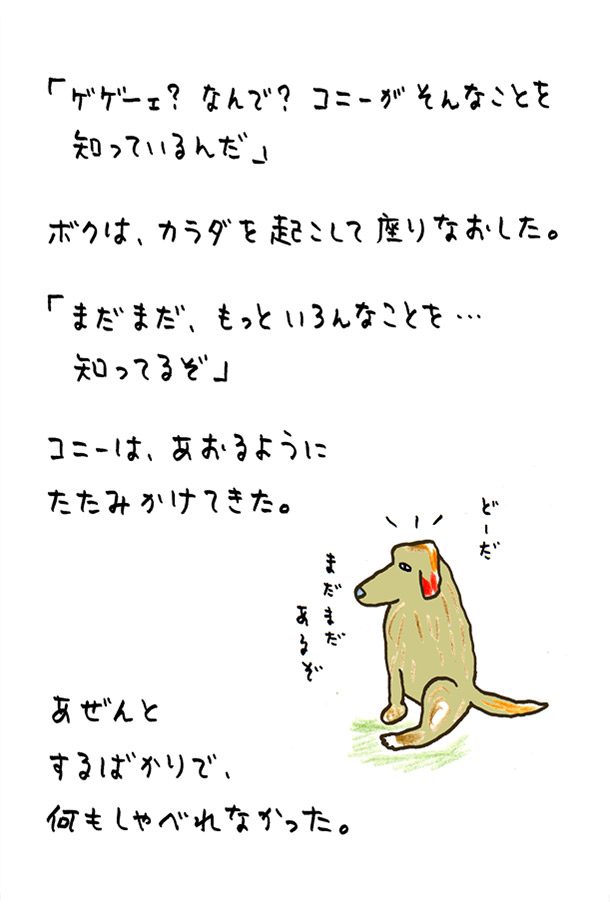 「ゲゲーェ？なんで？コニーがそんなことを
知っているんだ」
ボクは、カラダを起こして座りなおした。
「まだまだ、もっといろんなことを…
知ってるぞ」
コニーは、あおるように
たたみかけてきた。
どーだ
まだまだ
あるぞ
あぜんと
するばかりで、
何もしゃべれなかった。